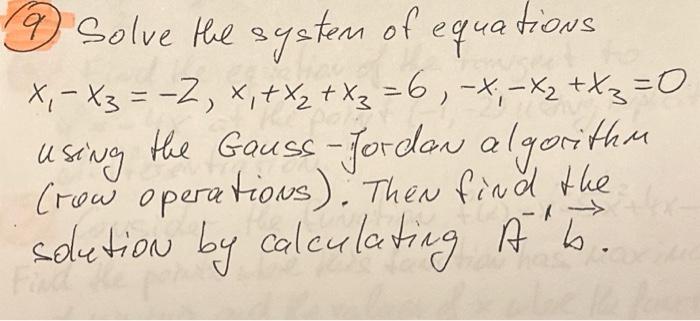 9 Solve the system of equations
x₁ - x₃ = -2, x₁ + x₂ + x₃ = 6, -x₁ - x₂ + x₃ = 0
using the Gauss-Jordan algorithm
(row operations). Then find the
solution by calculating A⁻¹ b⃗.